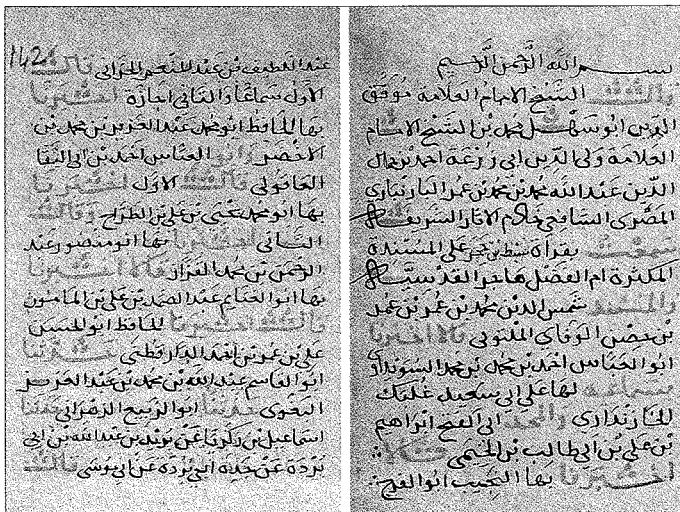 بسم الله الرحمن الرحيم
قال الشيخ الامام العلامة موفق
الدين ابو سهل محمد بن الشيخ الامام
العلامة ولى الدين ابى زرعة احمد بن جمال
الدين عبد الله محمد بن محمد بن عمر البارنبارى
المصرى الشافعى خادم الاثار الشريفة
سمعت بقراة على المسندة
المكثرة ام الفضل هاجر القدسية
والمسند شمس الدين محمد بن عمر بن عمر
بن حصن الوفاى الملتوتى قالا اخبرنا
ابو العباس احمد بن محمد بن محمد السويداوى
سماعا لها على ابى سعيد غلبك
للخازندارى والحد ابى الفتح ابراهيم
بن على بن ابى طالب بن الخيمى
اخبرنا بها النجيب ابو الفرج
142
عبد اللطيف بن عبد المنعم الحرانى قال
الاول سماعا والثانى اجازة اخبرنا
بها الحافظ ابو محمد عبد العزيز بن محمد بن
الاخضر وابو العباس احمد بن ابى البقا
العاقولى قال الاول اخبرنا
بها ابو محمد يحيى بن على بن الطراح وقال
الثانى اخبرنا بها ابو منصور عبد
الرحمن بن محمد القزاز قالا اخبرنا
بها ابو الغنايم عبد الصمد بن على بن المامون
قال اخبرنا الحافظ ابو الحسن
على بن عمر بن احمد الدارقطنى حدثنا
ابو القاسم عبد الله بن محمد بن عبد العزيز
البغوى حدثنا ابو الربيع الزهرانى حدثنا
اسماعيل بن زكريا عن بريد بن عبد الله بن ابى
بردة عن جده ابى بردة عن ابى موسى قال